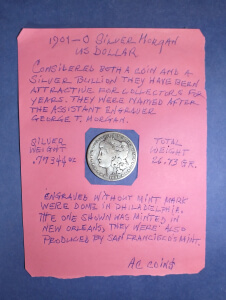 1901-O SILVER MORGAN
US DOLLAR
CONSIDERED BOTH A COIN AND A
SILVER BULLION. THEY HAVE BEEN
ATTRACTIVE FOR COLLECTORS FOR
YEARS. THEY WERE NAMED AFTER
THE ASSISTANT ENGRAVER
GEORGE T. MORGAN.
SILVER
WEIGHT
.77344 OZ
TOTAL
WEIGHT
26.73 GR.
ENGRAVED WITHOUT MINT MARK
WERE DONE IN PHILADELPHIA.
THE ONE SHOWN WAS MINTED IN
NEW ORLEANS, THEY WERE ALSO
PRODUCED BY SAN FRANCISCO'S MINT.
AC COINS